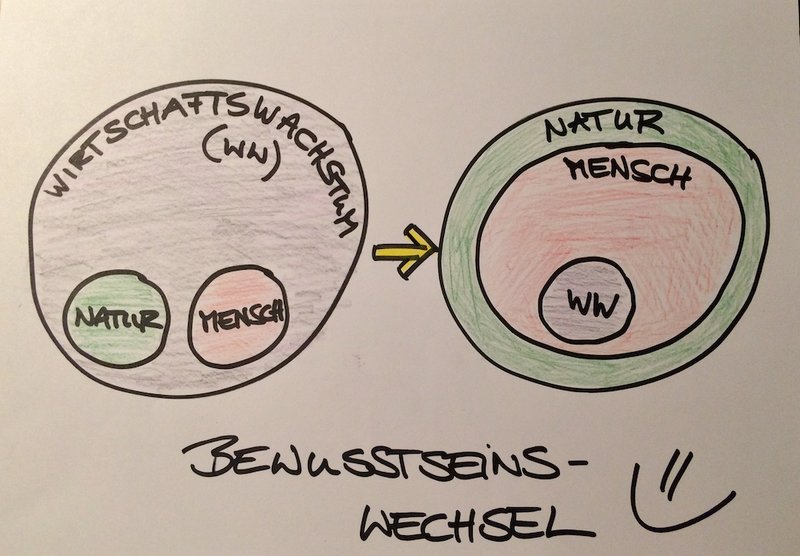 WIRTSCHAFTSWACHSTUM
(WW)
NATUR
MENSCH
NATUR
MENSCH
WW
BEWUSSTSEINS-
WECHSEL